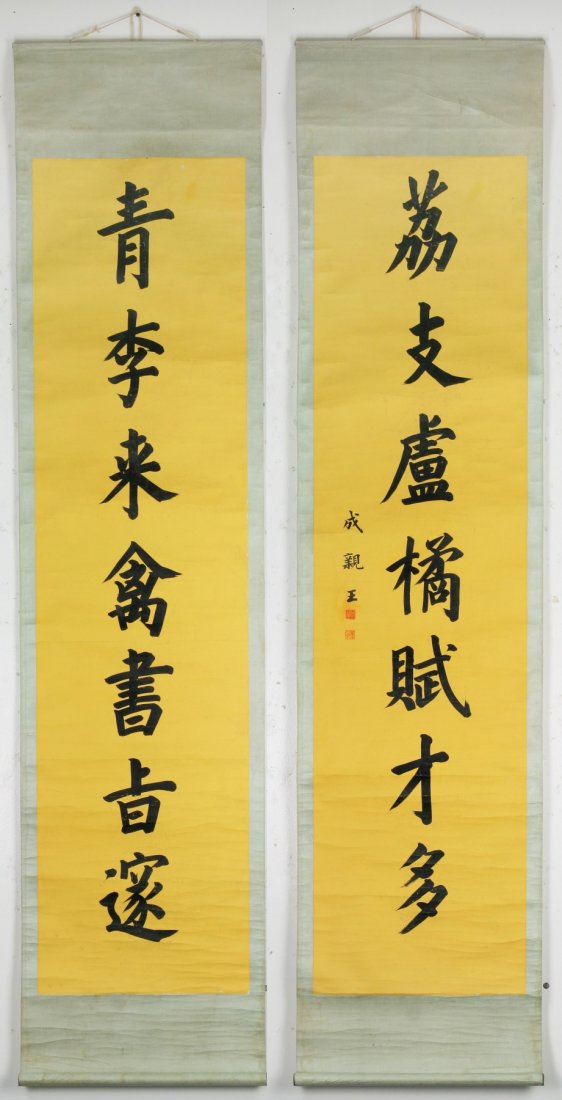 青李来禽書㫖邃
荔支盧橘賦才多
成親王